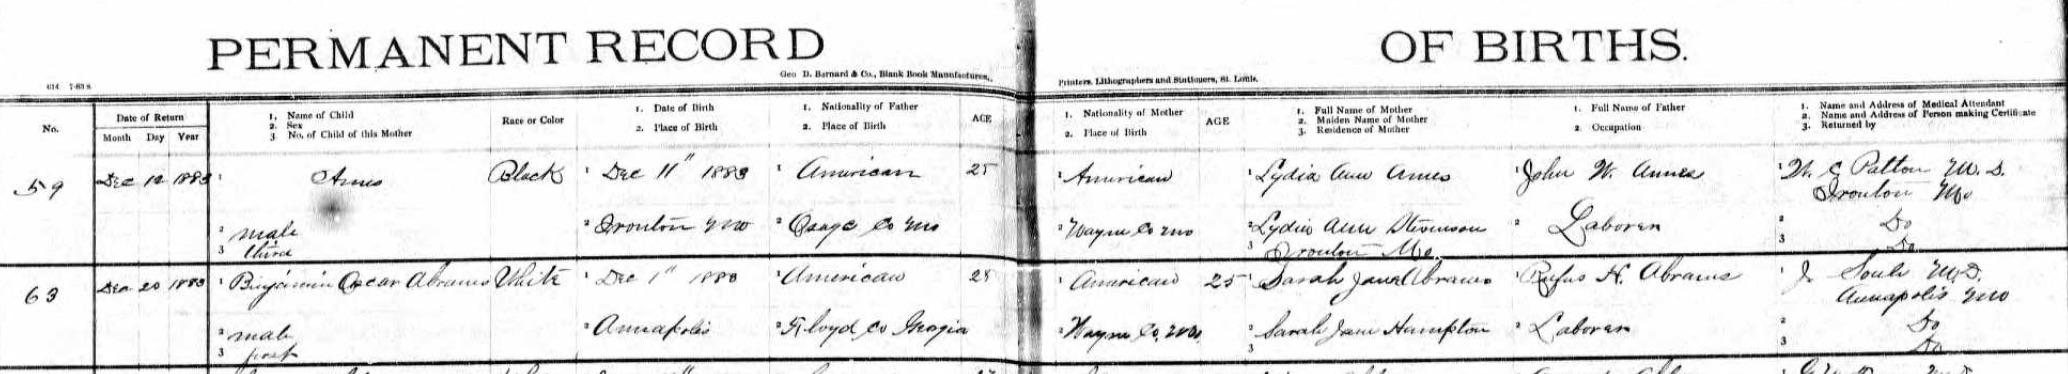 PERMANENT RECORD OF BIRTHS.
Geo D. Barnard & Co., Blank Book Manufactures,.
Printers, Lithographers and Stationers, St. Louis.
No.
Date of Return
Month Day Year
1. Name of Child
2. Sex
3 No. of Child of this Mother
Race or Color
1. Date of Birth
2. Place of Birth
1. Nationality of Father
2. Place of Birth
AGE
1. Nationality of Mother
2. Place of Birth
AGE
1. Full Name of Mother
2. Maiden Name of Mother
3. Residence of Mother
1. Full Name of Father
2 Occupation
1. Name and Address of Medical Attendant
2. Name and Address of Person making Certificate
3. Returned by
59 Dec 12 1883 1 Ames Black 1 Dec 11" 1883 1 American 25 1 American 1 Lydia Ann Ames 1 John W. Ames 1 W. C Patton M. D.
Ironton Mo
2 male 2 Ironton Mo 2 Osage Co Mo 2 Wayne Co Mo 2 Lydia Ann Stevenson 2 Laborer 2 Do
3 third 3 Ironton Mo. 3 Do
63 Dec 20 1883 1 Benjamin Oscar Abrams White 1 Dec 1" 1883 1 American 28 1 American 25 1 Sarah Jane Abrams 1 Rufus H. Abrams 1 J Soule M.D.
Annapolis Mo
2 male 2 Annapolis 2 Floyd Co Georgia 2 Wayne Co, Mo. 2 Sarah Jane Hampton 2 Laborer 2 Do
3 first 3 3 Do